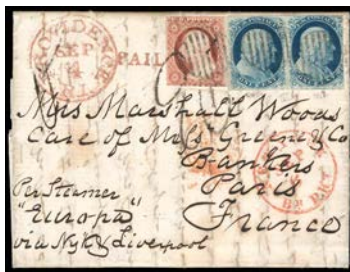 PROVIDENCE
SEP
14
R.I.
PAID
Mrs Marshall Woods
Care of Messrs Greene & Co
Bankers
Paris
France
Per Steamer
"Europa"
via NYk & Liverpool
BR. PKT